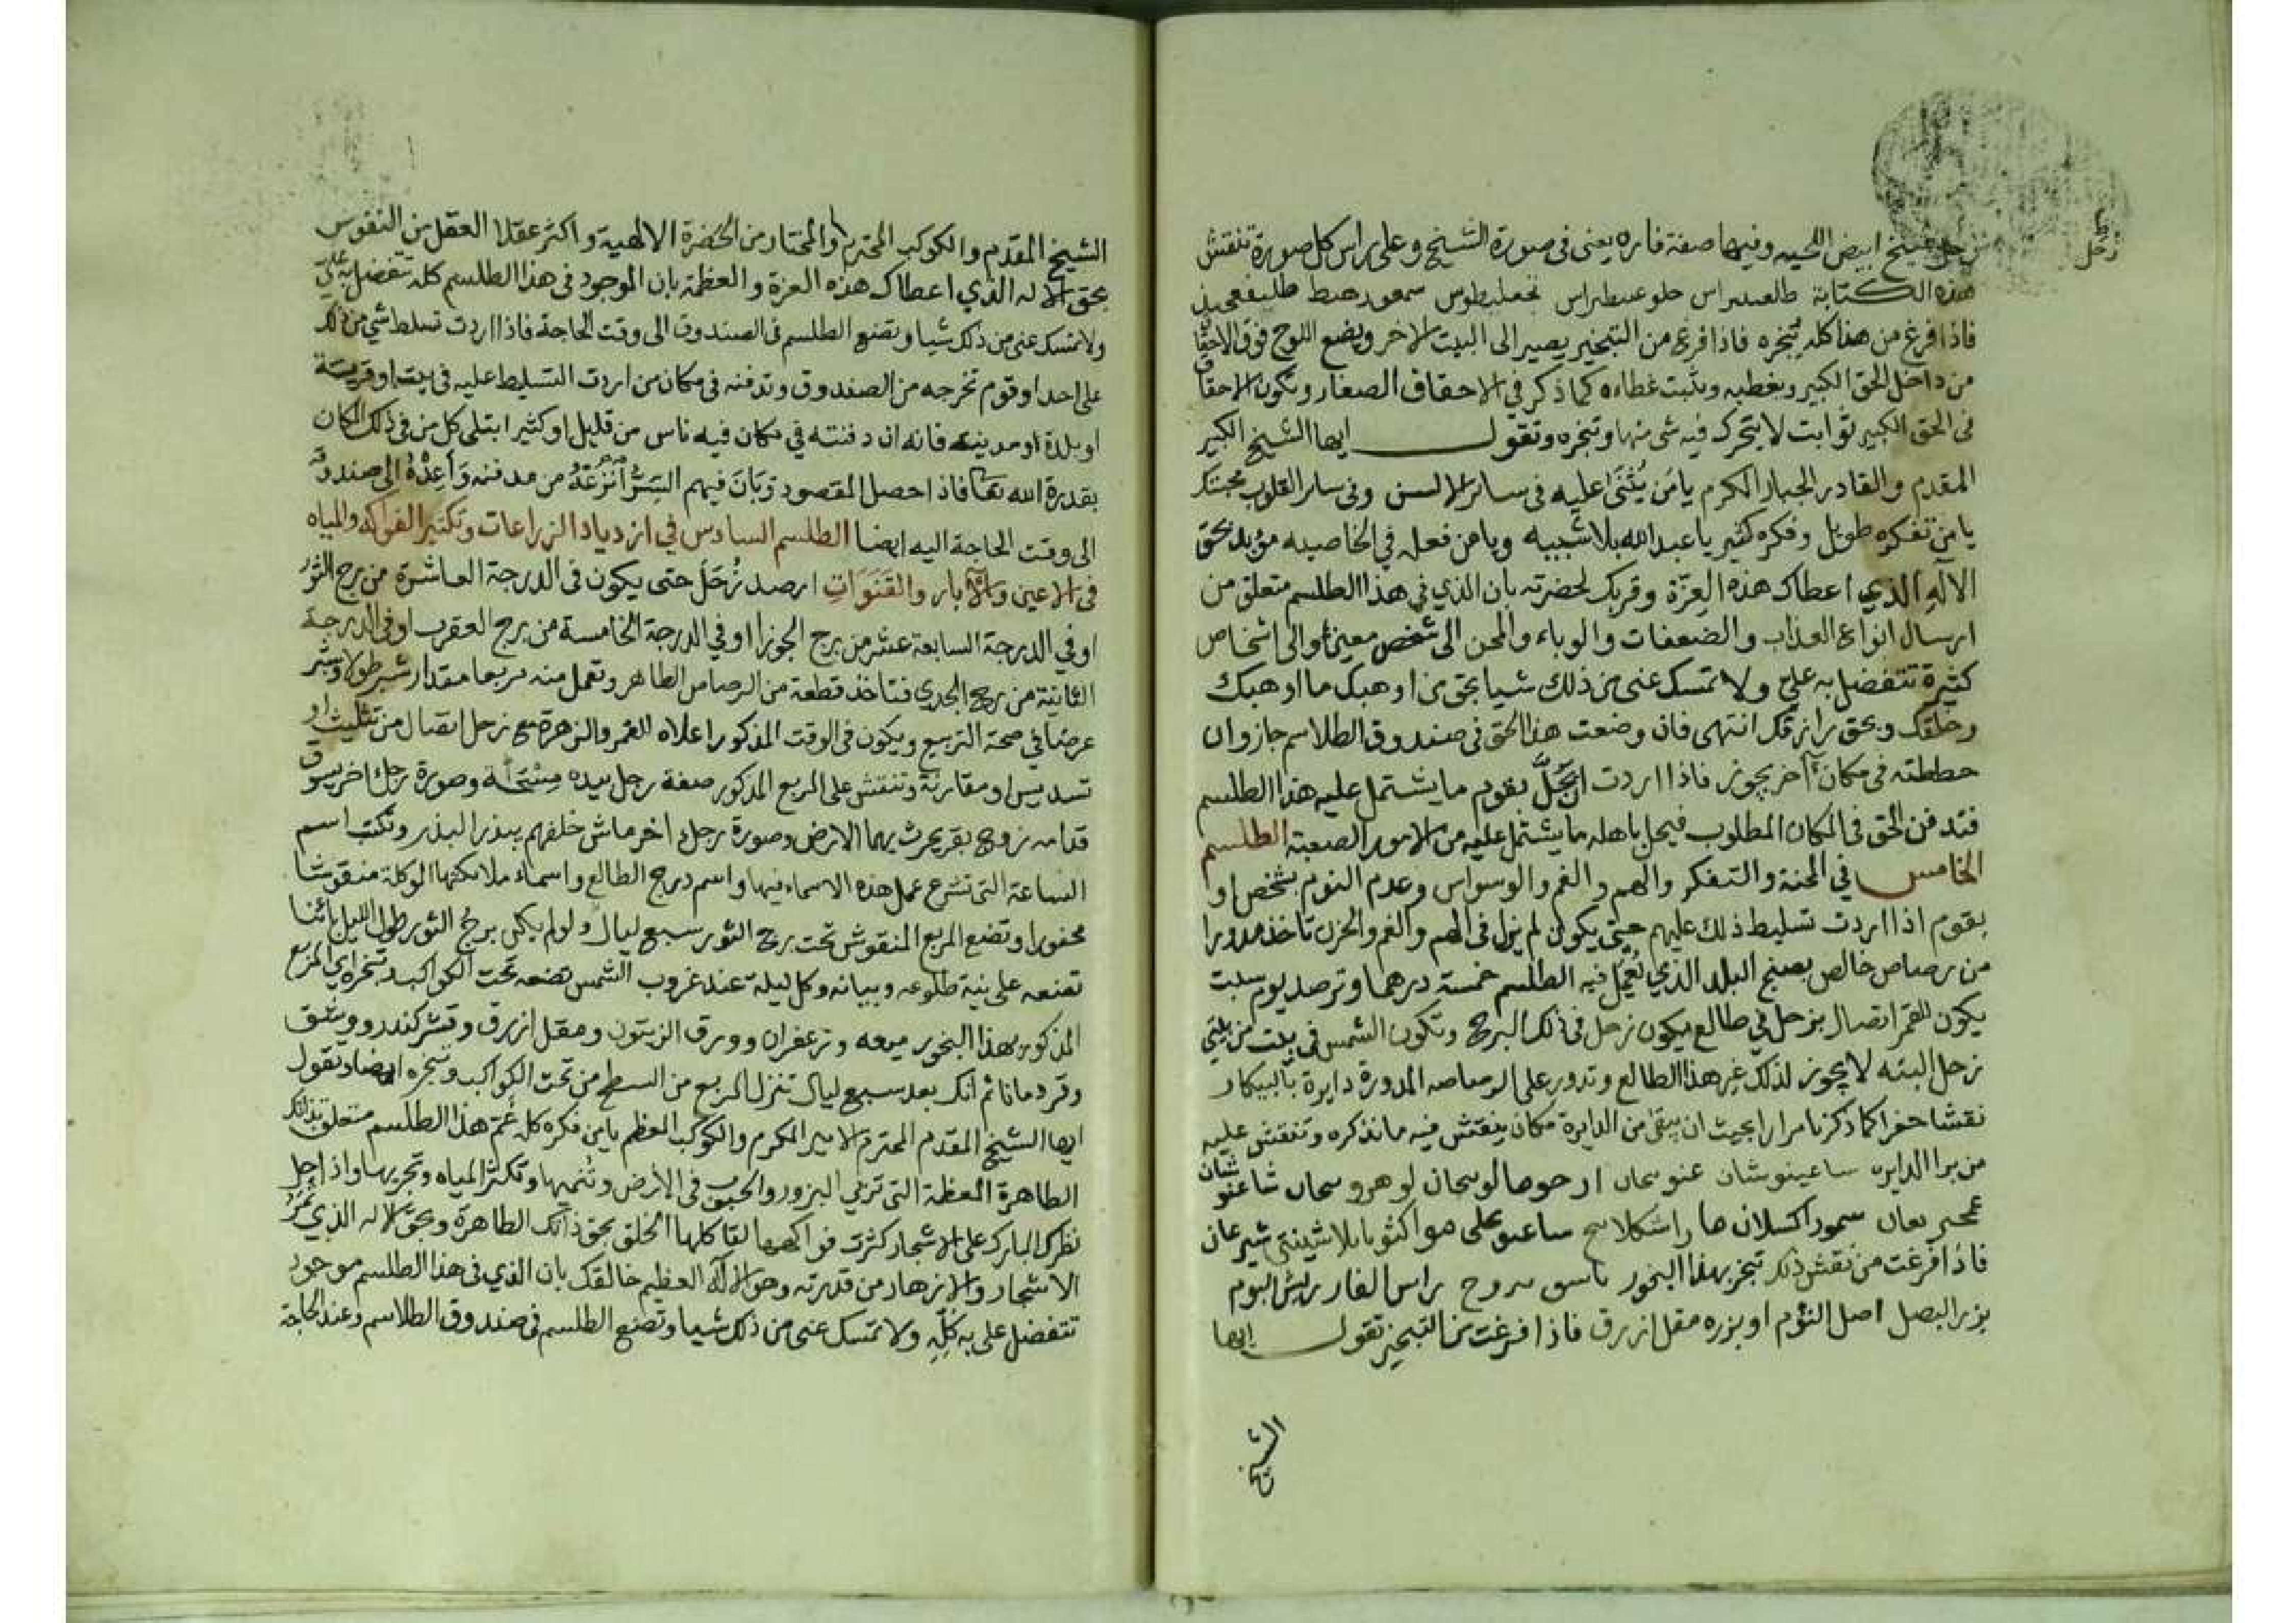 زحل شيخ ابيض اللحيه وفيها صفة فاره يعنى فى صورة الشيخ وعلى راس كل صورة تنقش
هذه الكتابة
فاذا فرغ من هذا كله تبخره فاذا فرغ من التبخير يصير الى البيت الاخر ويضع اللوح فوق الاحقاق
من داخل الحق الكبير وتغطيه وتثبت غطاءه كما ذكر في الاحقاق الصغار وتكون الاحقاق
فى الحق الكبير ثوابت لا يتحرك فيه شى منها وتبخره وتقول ايها الشيخ الكبير
المقدم والقادر الجبار المكرم يا من يثنى عليه فى ساير الالسن وفى ساير القلوب
يا من تفكره طويل وفكره كثير يا عبد الله بلا شبيه ويا من فعله في الخاصيه مؤبد بحق
الاله الذي اعطاك هذه العزة وقربك لحضرته بان الذي في هذا الطلسم متعلق من
ارسال انواع العذاب والضعفات والوباء والمحن الى شخص معين او الى اشخاص
كثيرة تتفضل به على ولا تمسك عنى من ذلك شيا بحق من اوهبك ما اوهبك
وخلقك وبحق رازقك انتهى فان وضعت هذا الحق فى صندوق الطلاسم جاز وان
حططته فى مكان آخر يجوز فاذا اردت ان يحل بقوم ما يشتمل عليه هذا الطلسم
فتدفن الحق فى المكان المطلوب فيحل باهله ما يشتمل عليه من الامور الصعبة الطلسم
الخامس في المحنة والتفكر والهم والغم والوسواس وعدم النوم بشخص او
بقوم اذا اردت تسليط ذلك عليهم حتى يكون لم يزل فى الهم والغم والحزن تاخذ مدورا
من رصاص خالص بصنج البلد الذي تعمل فيه الطلسم خمسة درهما وترصد يوم سبت
يكون للقمر اتصال بزحل في طالع يكون زحل فى ذلك البرج وتكون الشمس فى بيت من بيتي
زحل البته لا يجوز لذلك غير هذا الطالع وتدور على الرصاصه المدورة دايرة بالبيكار
نقشا حفرا كما ذكرنا مرارا بحيث ان يبقى من الدايرة مكان ينقش فيه ما نذكره وتنقش عليه
من برا الدايره ساعينوشان
فاذا فرغت من نقش ذلك تبخر بهذا البخور راس الفار ريش البوم
بزر البصل اصل الثوم او بزره مقل ازرق فاذا فرغت من التبخير تقول ايها
الشيخ
الشيخ المقدم والكوكب المحترم والمختار من الحضرة الالهية واكثر عقلا العقل من النفوس
بحق الاله الذي اعطاك هذه العزة والعظمة بان الموجود فى هذا الطلسم كله تتفضل به على
ولا تمسك عنى من ذلك شيا وتضع الطلسم فى الصندوق الى وقت الحاجة فاذا اردت تسلط شي من ذلك
على احد او قوم تخرجه من الصندوق وتدفنه فى مكان من اردت التسليط عليه فى بيت او قرية
او بلدة او مدينه فانه ان دفنته في مكان فيه ناس من قليل او كثير ابتلى كل من فى ذلك المكان
بقدرة الله تعا فاذا حصل المقصود وبان فيهم السر أنزعه من مدفنه وأعده الى صندوقه
الى وقت الحاجة اليه ايضا الطلسم السادس في ازدياد الزراعات وتكثير الفواكه والمياه
فى الاعين والآبار والقنوات ارصد زحل حتى يكون فى الدرجة العاشرة من برج الثور
او في الدرجة السابعة عشر من برج الجوزا او في الدرجة الخامسة من برج العقرب او فى الدرجة
الثانية من برج الجدي فتاخذ قطعة من الرصاص الطاهر وتعمل منه مربعا مقدار شبر طولا وشبر
عرضا في صحة التربيع ويكون فى الوقت المذكور اعلاه القمر والزهرة مع زحل اتصال من تثليث او
تسديس او مقارنة وتنقش على المربع المذكور صفة رجل بيده مسحاة وصورة رجل اخر يسوق
قدامه زوج بقر يحرث بهما الارض وصورة رجل اخر ماش خلفهم يبذر البذر وتكتب اسم
الساعة التى تشرع عمل هذه الاسماء فيها واسم درج الطالع واسماء ملائكتها الموكلة منقوشا
محفورا وتضع المربع المنقوش تحت برج الثور سبع ليال ولو لم يكن برج الثور طول الليل بائنا
تضعه على نية طلوعه وبيانه وكل ليلة عند غروب الشمس تضعه تحت الكواكب وتبخره اي المربع
المذكور بهذا البخور ميعه وزعفران وورق الزيتون ومقل ازرق وقشر كندر ووشق
وقردمانا ثم انك بعد سبع ليال تنزل المربع من السطح من تحت الكواكب وتبخره ايضا وتقول
ايها الشيخ المقدم المحترم الامير المكرم والكوكب المعظم يا من فكره كله غم هذا الطلسم متعلق بذاتك
الطاهرة المعظمة التى تربي البزور والحبوب فى الأرض وتنميها وتكثر المياه وتجريها واذا حل
نظرك المبارك على الاشجار كثرت فواكهها لقا كلها الخلق بحق ذاتك الطاهرة وبحق الاله الذي
الاشجار والازهار من قدرته وهو الاله العظيم خالقك بان الذي فى هذا الطلسم موجود
تتفضل على به كله ولا تمسك عنى من ذلك شيا وتضع الطلسم فى صندوق الطلاسم وعند الحاجة